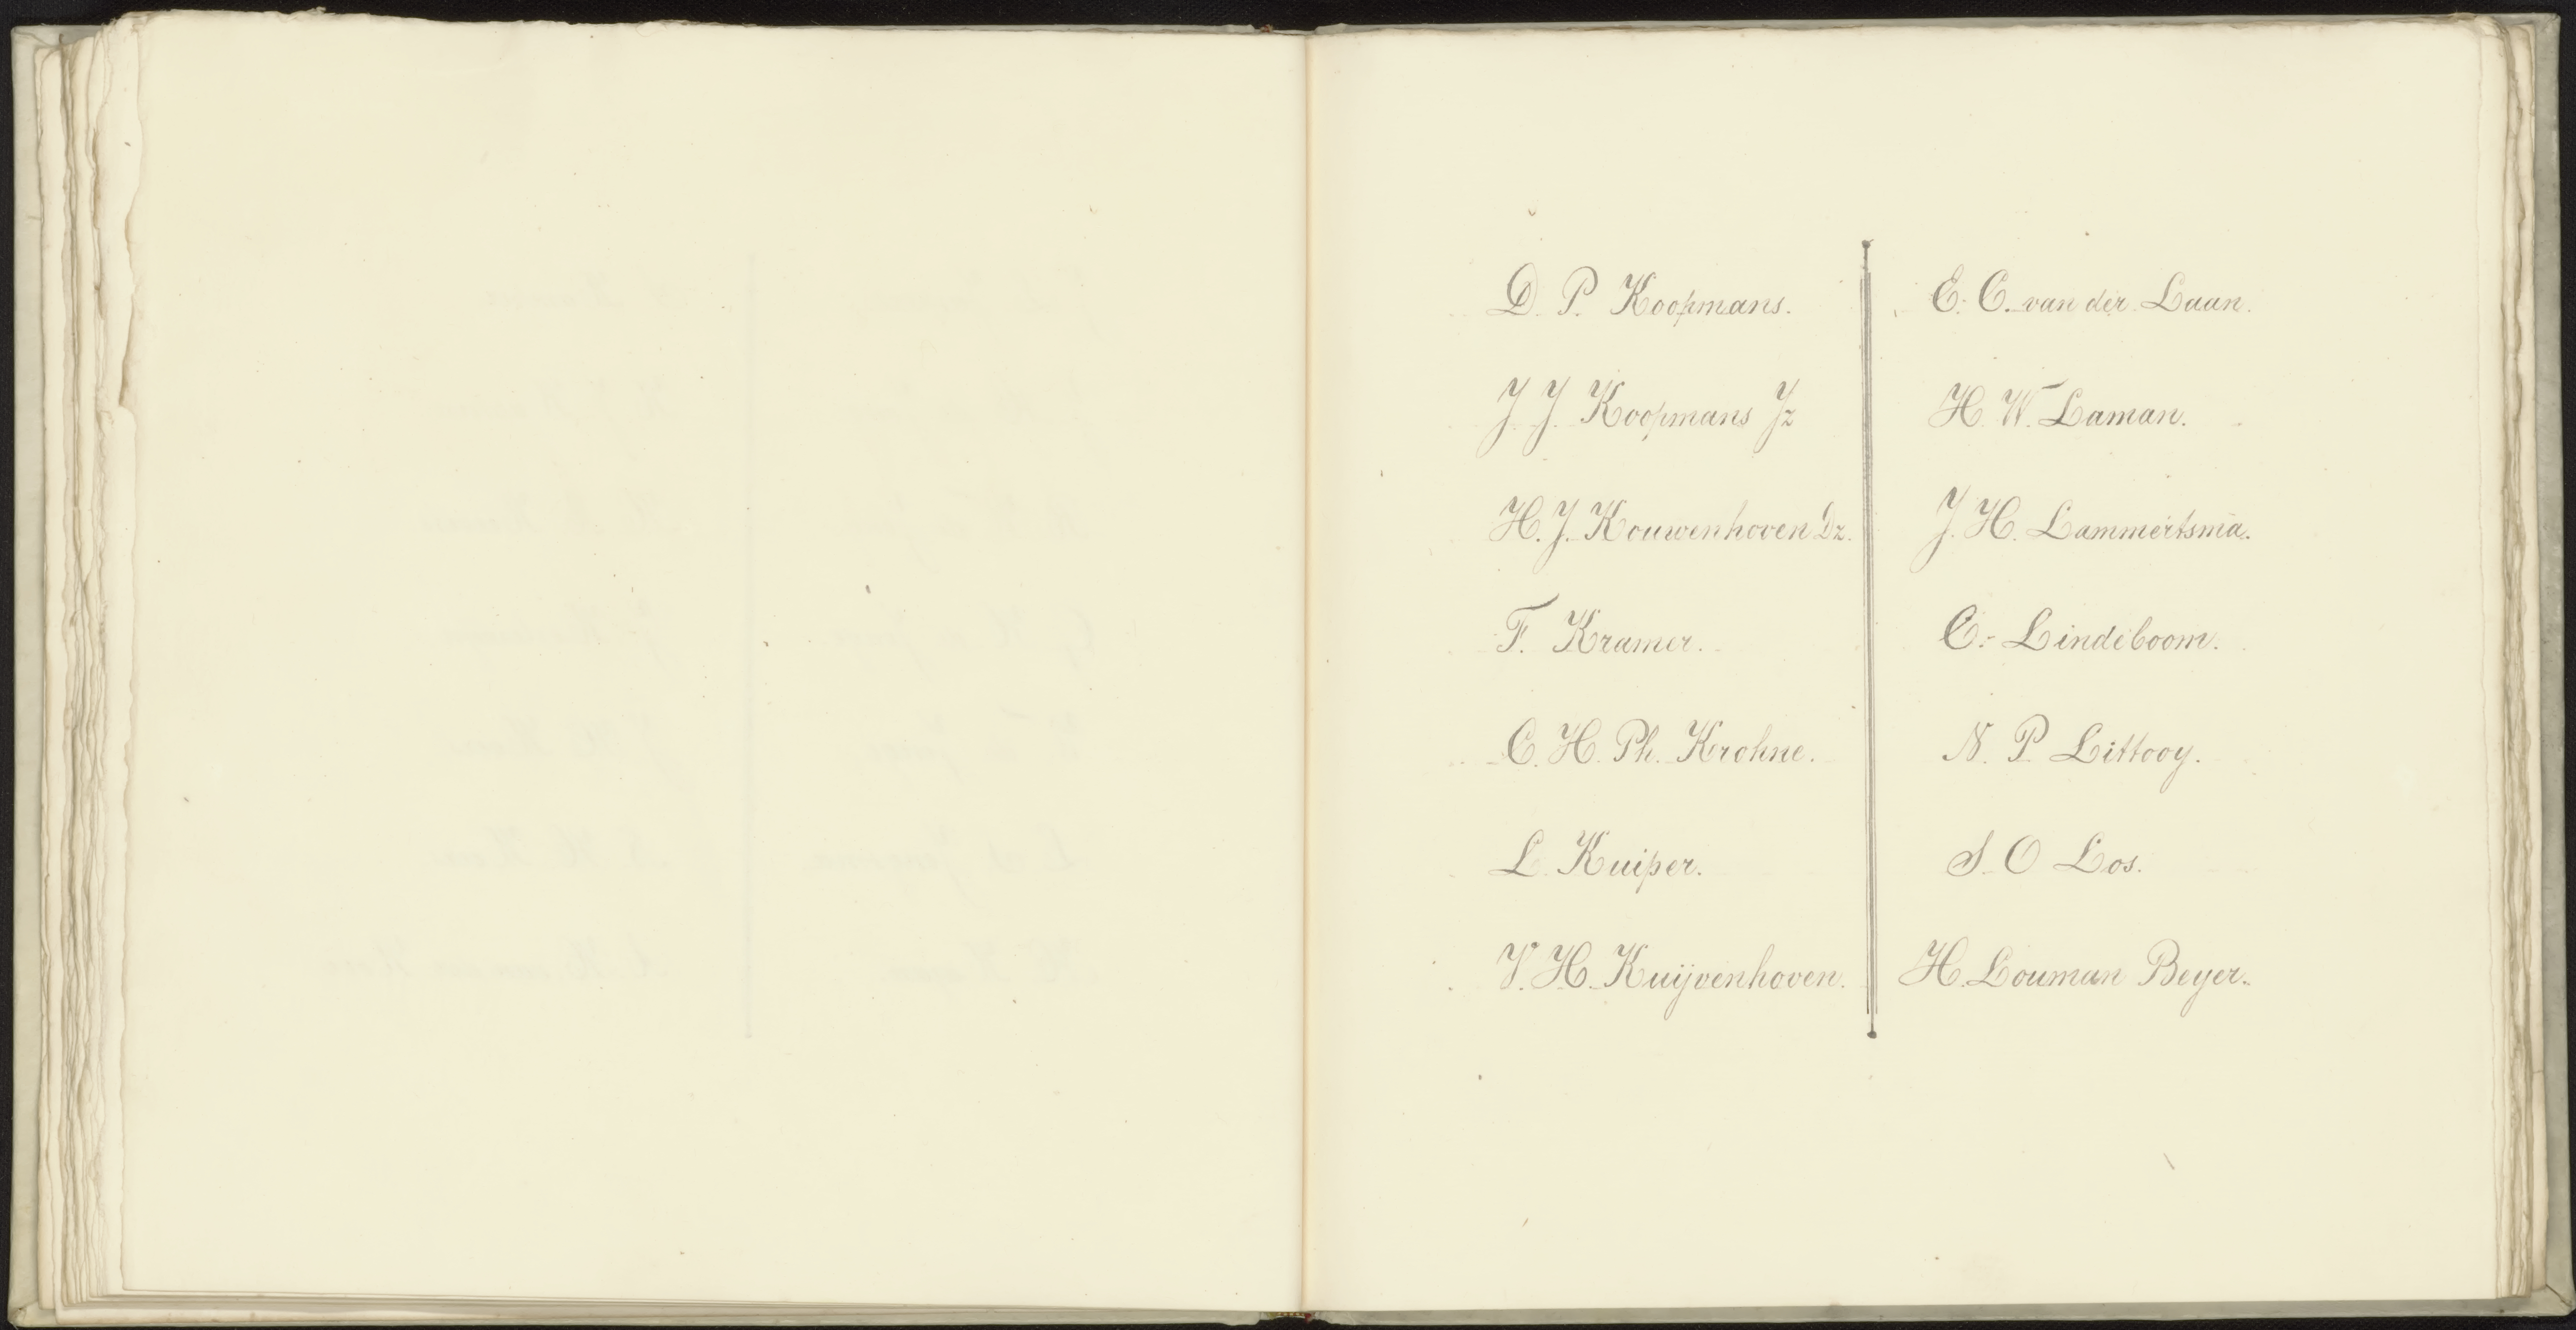 D. P. Koopmans.
J. J. Koopmans Jz
H. J. Kouwenhoven Dz.
F. Kramer.
C. H. Ph. Krohne.
L. Kuiper.
V. H. Kuijvenhoven.
E. C. van der Laan.
H. W. Laman.
J. H. Lammertsma.
C. Lindeboom.
N. P. Littooy.
S. O Los.
H. Louman Beyer.